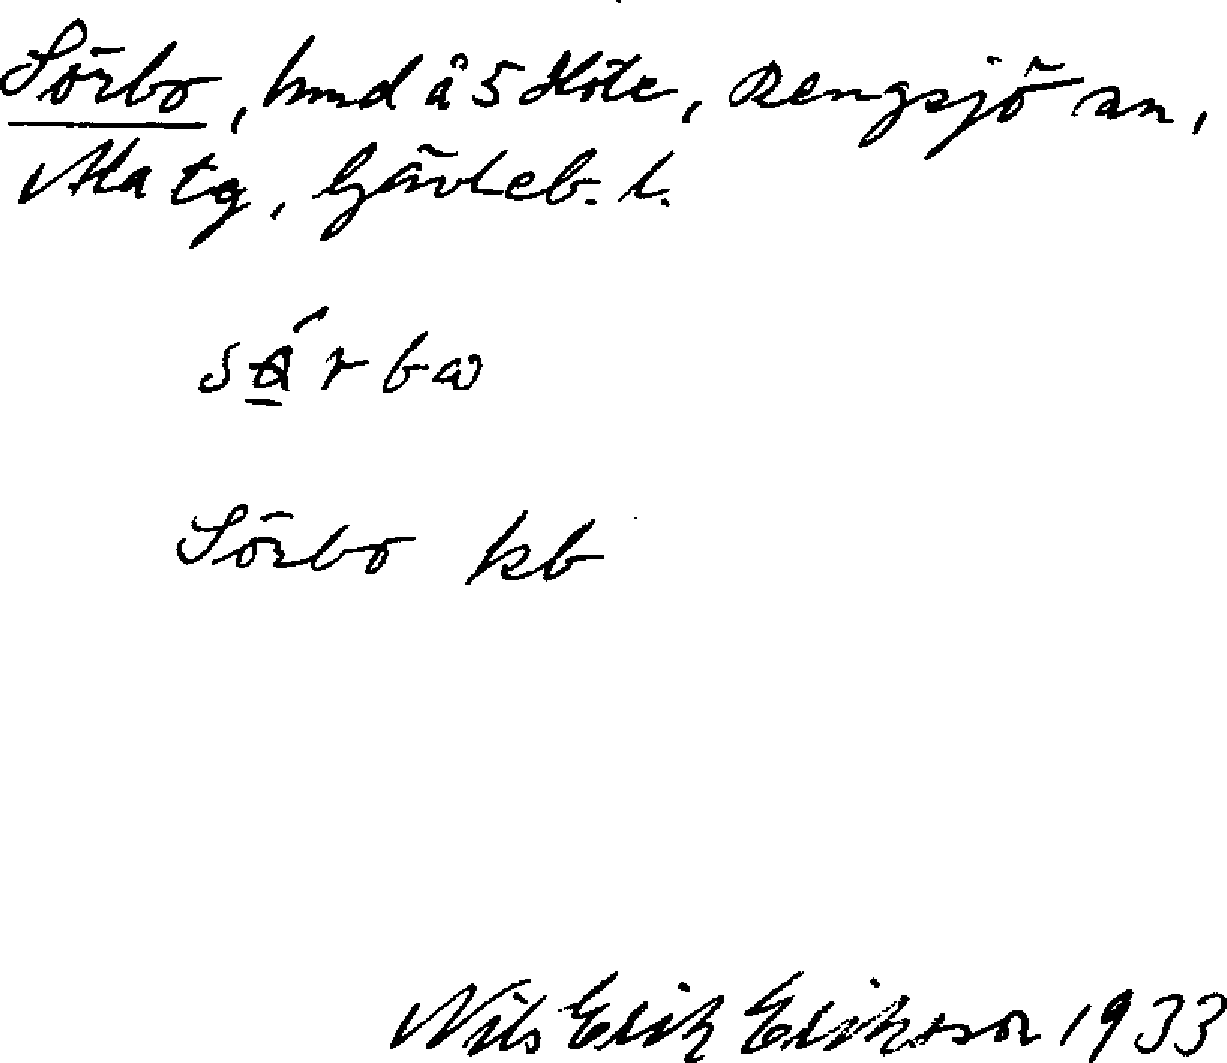 Sörbo, hmd å 5 Höle, Rengsjö sn,
Ala tg, Gävleb. l.
Sörbo kb
Nils Erik Eriksson 1933